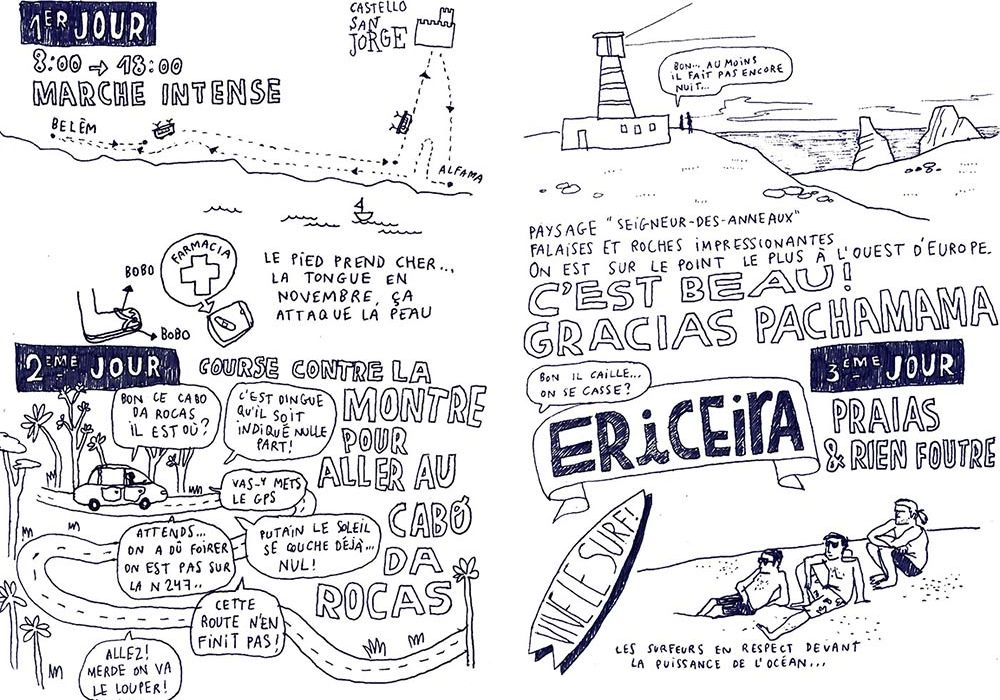 1ER JOUR
8:00 → 18:00
MARCHE INTENSE
BELÊM
CASTELLO
SAN
JORGE
ALFAMA
FARMACIA
BOBO
BOBO
LE PIED PREND CHER...
LA TONGUE EN
NOVEMBRE, ÇA
ATTAQUE LA PEAU
2EME JOUR
COURSE CONTRE LA
MONTRE
POUR
ALLER AU
CABO
DA
ROCAS
BON CE CABO
DA ROCAS
IL EST OÙ?
C'EST DINGUE
QU'IL SOIT
INDIQUÉ NULLE
PART!
VAS-Y METS
LE GPS
ATTENDS...
ON A DÛ FOIRER
ON EST PAS SUR
LA N247..
PUTAIN LE SOLEIL
SE COUCHE DÉJÀ...
NUL!
CETTE
ROUTE N'EN
FINIT PAS!
ALLEZ!
MERDE ON VA
LE LOUPER!
BON... AU MOINS
IL FAIT PAS ENCORE
NUIT...
PAYSAGE "SEIGNEUR-DES-ANNEAUX"
FALAISES ET ROCHES IMPRESSIONANTES
ON EST SUR LE POINT LE PLUS À L'OUEST D'EUROPE.
C'EST BEAU!
GRACIAS PACHAMAMA
BON IL CAILLE...
ON SE CASSE?
3EME JOUR
ERICEIRA
PRAIAS
& RIEN FOUTRE
VIVE LE SURF!
LES SURFEURS EN RESPECT DEVANT
LA PUISSANCE DE L'OCÉAN...